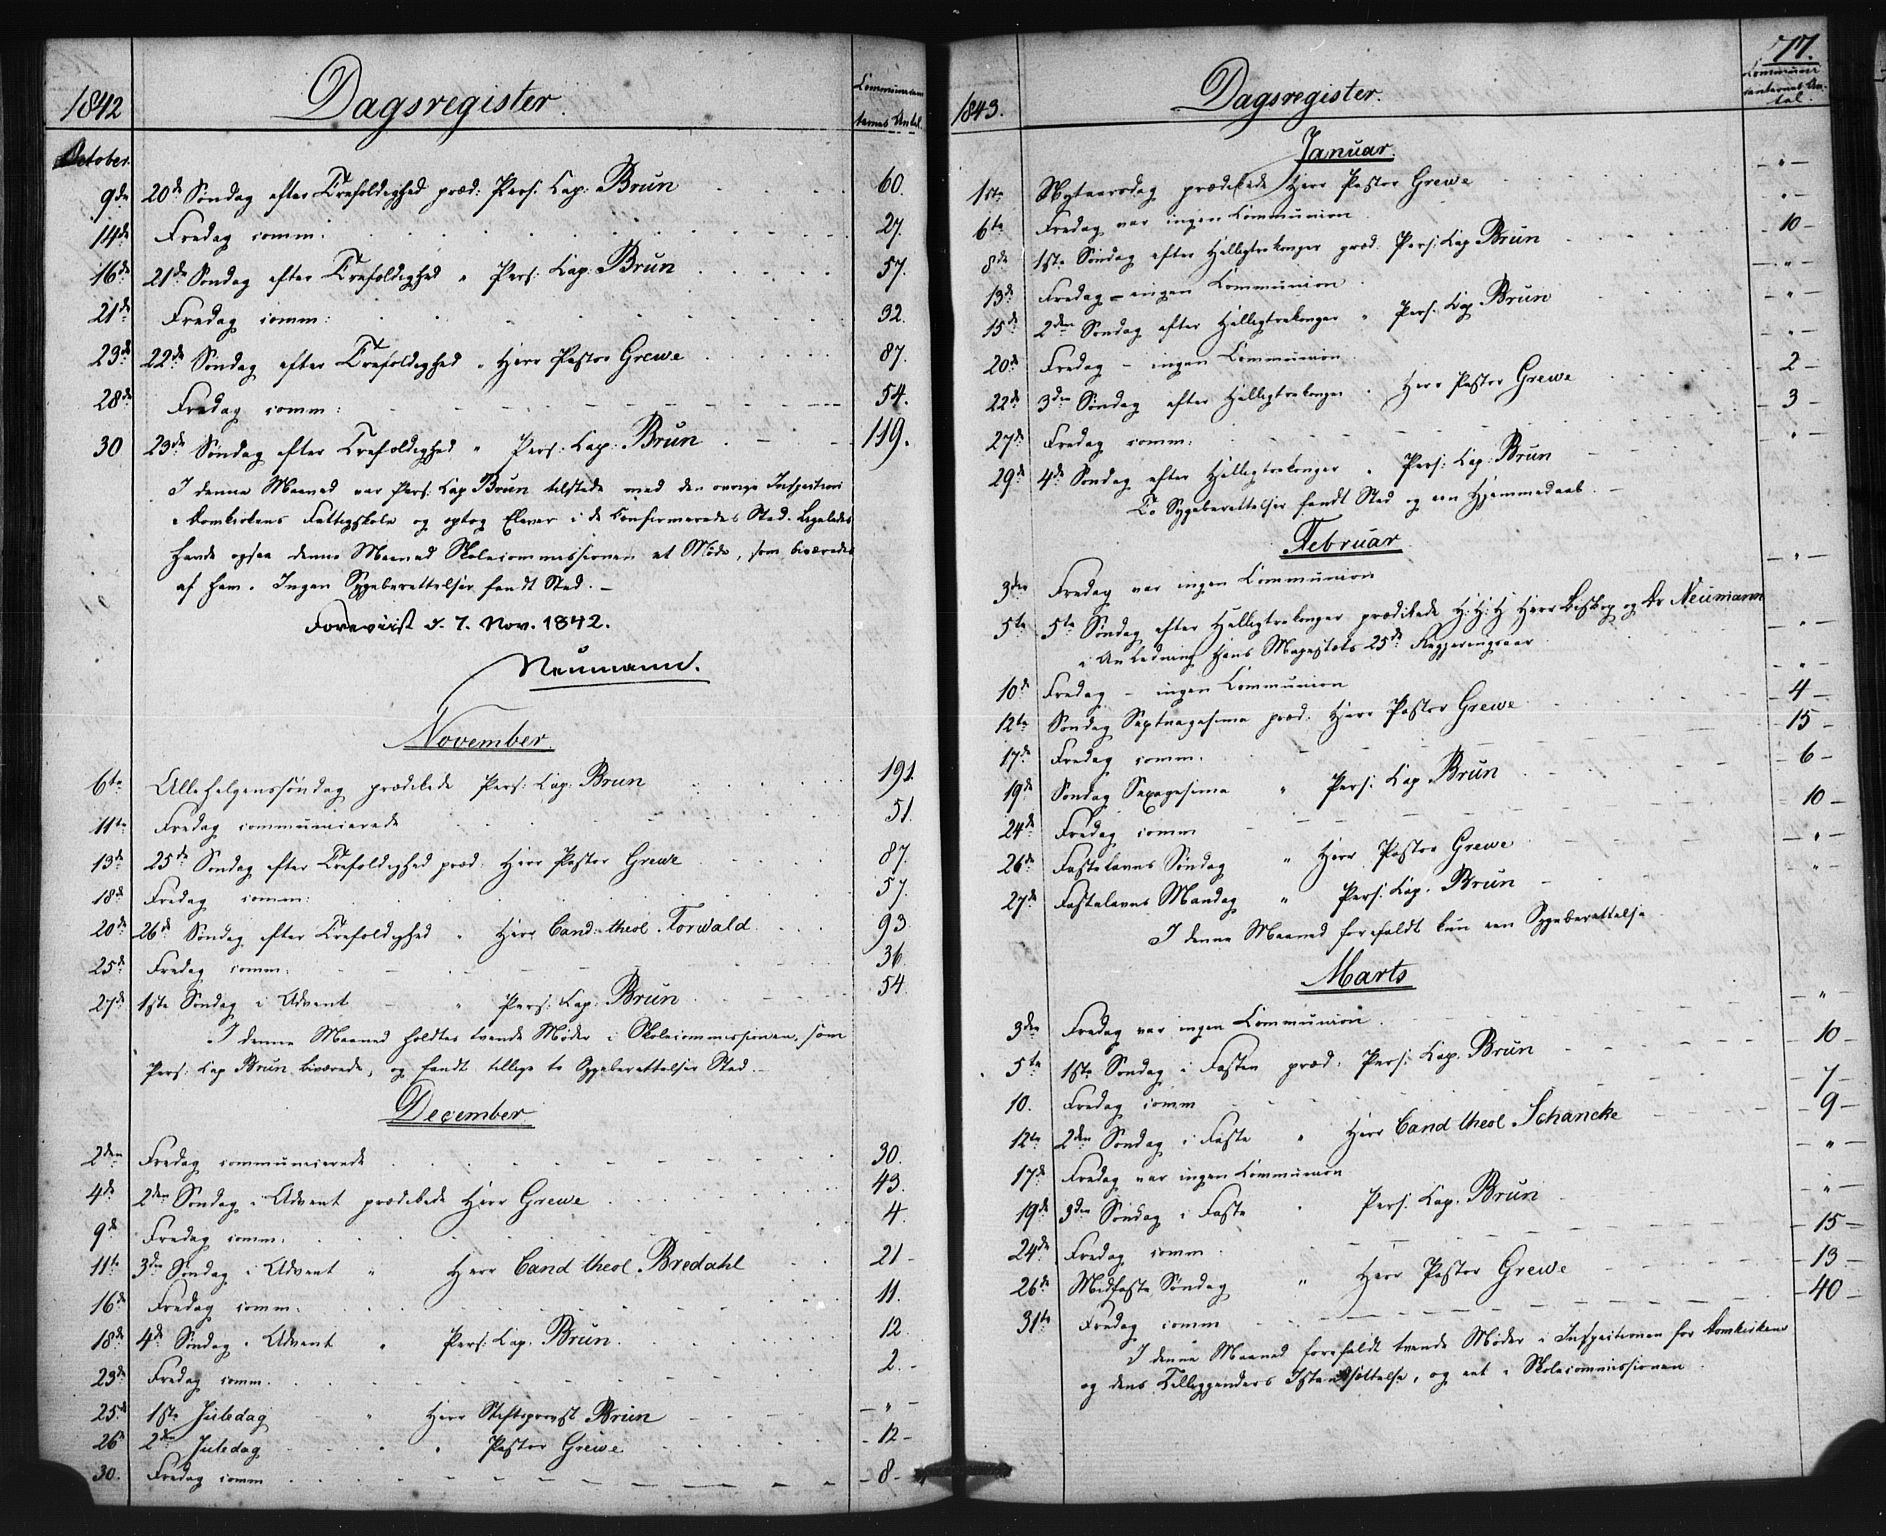 1842 Dagsregister. Communicanternes Antal.
October.
9de 20de Søndag efter Trefoldighed præd: Pers: Cap: Brun 60.
14de Fredag comm: 27.
16de 21de Søndag efter Trefoldighed " Pers: Cap: Brun 57.
21de Fredag comm: 32.
23de 22de Søndag efter Trefoldighed " Herr Pastor Grewe 87.
28de Fredag comm: 54.
30 23de Søndag efter Trefoldighed " Pers: Cap: Brun 119.
I denne Maaned var Pers: Cap Brun tilstede med den øvrige Inspection
i Domkirkens Fattigskole og optog Elever i de Confirmeredes Sted. Ligeledes
havde ogsaa denne Maaned Skolecommissionen et Møde, som bivaanedes
af ham. Ingen Sygeberettelser fandt Sted. –
Foreviist d. 7. Nov. 1842.
Neumann.
November.
6te Allehelgenssøndag prædikede Pers: Cap: Brun 191.
11te Fredag communicerede 51.
13de 25de Søndag efter Trefoldighed præd: Herr Pastor Grewe 87.
18de Fredag comm: 57.
20de 26de Søndag efter Trefoldighed " Herr Cand: theol. Torwald 93
25de Fredag comm: 36
27de 1ste Søndag i Advent " Pers: Cap: Brun 54
I denne Maaned holdtes tvende Møder i Skolecommissionen, som
Pers: Cap Brun bivaanede, og fandt tillige to Sygeberettelser Sted.
December
2den Fredag communicerede 30.
4de 2den Søndag i Advent prædikede Herr Grewe 43.
9de Fredag comm: 4.
11te 3die Søndag i Advent " Herr Cand theol. Bredahl 21 –
16de Fredag comm. 11.
18de 4de Søndag i Advent " Pers: Cap: Brun 12
23de Fredag comm. 2. –
25de 1ste Juledag " Herr Stiftsprovst Brun – " –
26de 2den Juledag " " Pastor Grewe – 12 –
30. Fredag comm – 8 –
77.
1843. Dagsregister. Communicanternes Antal.
Januar.
1ste Nytaarsdag prædikede Herr Pastor Grewe – " –
6te Fredag var ingen Communion " –
8de 1ste Søndag efter Helligtrekonger præd. Pers: Cap Brun 10 –
13de Fredag – ingen Communion – " –
15de 2den Søndag efter Helligtrekonger " Pers: Cap Brun – " –
20de Fredag – ingen Communion – " –
22de 3die Søndag efter Helligtrekonger " Herr Pastor Grewe 2 –
27de Fredag comm: – 3 –
29de 4de Søndag efter Helligtrekonger " Pers: Cap: Brun – " –
To Sygeberettelser fandt Sted og een Hjemmedaab. –
Februar
3die Fredag var ingen Communion – " –
5te 5te Søndag efter Helligtrekonger prædikede H: H: H Herr Biskop og Dr Neumann
i Anledning Hans Majestæts 25de Regjeringsaar – " –
10de Fredag – ingen Communion – " –
12te Søndag Septuagesima præd. Herr Pastor Grewe – 4 –
17de Fredag comm. – 15 –
19de Søndag Sexagesima " Pers: Cap Brun – 6 –
24de Fredag comm – 10 –
26de Fastelavns Søndag " Herr Pastor Grewe – " –
27de Fastelavns Mandag " Pers: Cap. Brun – " –
I denne Maaned forefaldt kun een Sygeberettelse
Marts
3die Fredag var ingen Communion – " –
5te 1ste Søndag i Fasten præd. Pers: Cap. Brun – 10 –
10. Fredag comm – 7 –
12te 2den Søndag i Faste " Herr Cand theol Schancke – 9 –
17de Fredag var ingen Communion – " –
19de 3die Søndag i Faste " Pers: Cap. Brun – " –
24de Fredag comm – 15 –
26de Midfaste Søndag " Herr Pastor Grewe – 13 –
31te Fredag comm – 40 –
I denne Maaned forefaldt tvende Møder i Inspectionen for Domkirken
og dens Tilliggenders Istandsættelse, og eet i Skolecommissionen